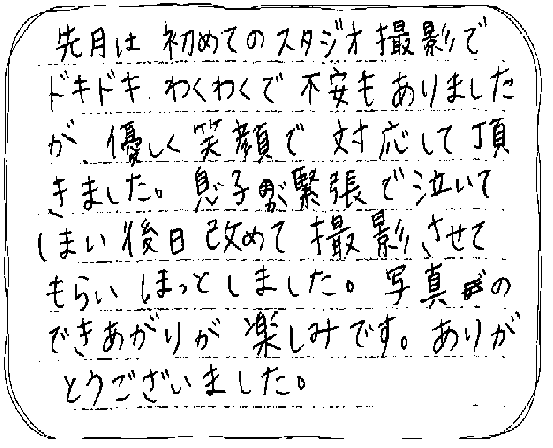 先月は 初めてのスタジオ撮影で
ドキドキ わくわくで 不安もありました
が、優しく笑顔で 対応して頂
きました。息子が緊張で泣いて
しまい後日改めて撮影させて
もらいほっとしました。写真の
できあがりが 楽しみです。ありが
とうございました。